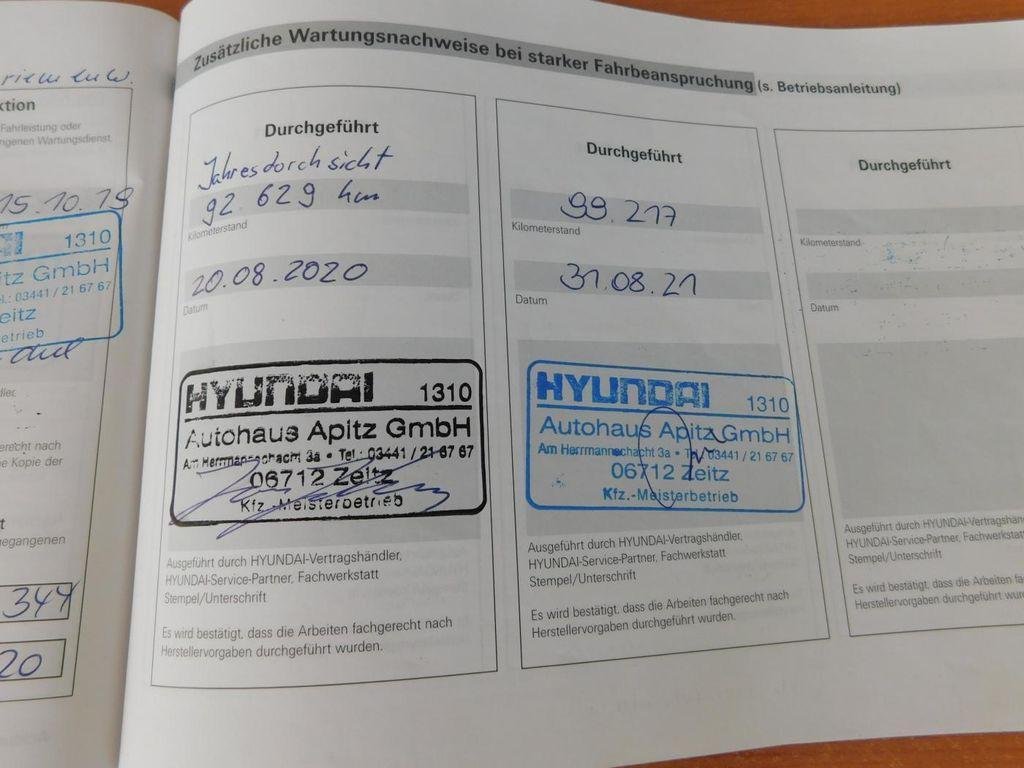 riemenw.
ktion
Fahrleistung oder
genen Wartungsdienst.
15.10.19
1310
itz GmbH
el.: 03441 / 21 67 67
eitz
etrieb
dler,
erecht nach
e Kopie der
t
egangenen
344
20
Zusätzliche Wartungsnachweise bei starker Fahrbeanspruchung (s. Betriebsanleitung)
Durchgeführt
Jahresdorchsicht
92 629 km
Kilometerstand
20.08.2020
Datum
HYUNDAI 1310
Autohaus Apitz GmbH
Am Herrmannschacht 3a • Tel.: 03441 / 21 67 67
06712 Zeitz
Kfz.-Meisterbetrieb
Ausgeführt durch HYUNDAI-Vertragshändler,
HYUNDAI-Service-Partner, Fachwerkstatt
Stempel/Unterschrift
Es wird bestätigt, dass die Arbeiten fachgerecht nach
Herstellervorgaben durchgeführt wurden.
Durchgeführt
99.217
Kilometerstand
31.08.21
Datum
HYUNDAI 1310
Autohaus Apitz GmbH
Am Herrmannschacht 3a • Tel.: 03441 / 21 67 67
06712 Zeitz
Kfz.-Meisterbetrieb
Ausgeführt durch HYUNDAI-Vertragshändler,
HYUNDAI-Service-Partner, Fachwerkstatt
Stempel/Unterschrift
Es wird bestätigt, dass die Arbeiten fachgerecht nach
Herstellervorgaben durchgeführt wurden.
Durchgeführt
Kilometerstand
Datum
Ausgeführt durch HYUNDAI-Vertragshän
HYUNDAI-Service-Partner, Fachwerkstatt
Stempel/Unterschrift
Es wird bestätigt, dass die Arbeiten fa
Herstellervorgaben durchgeführt wur